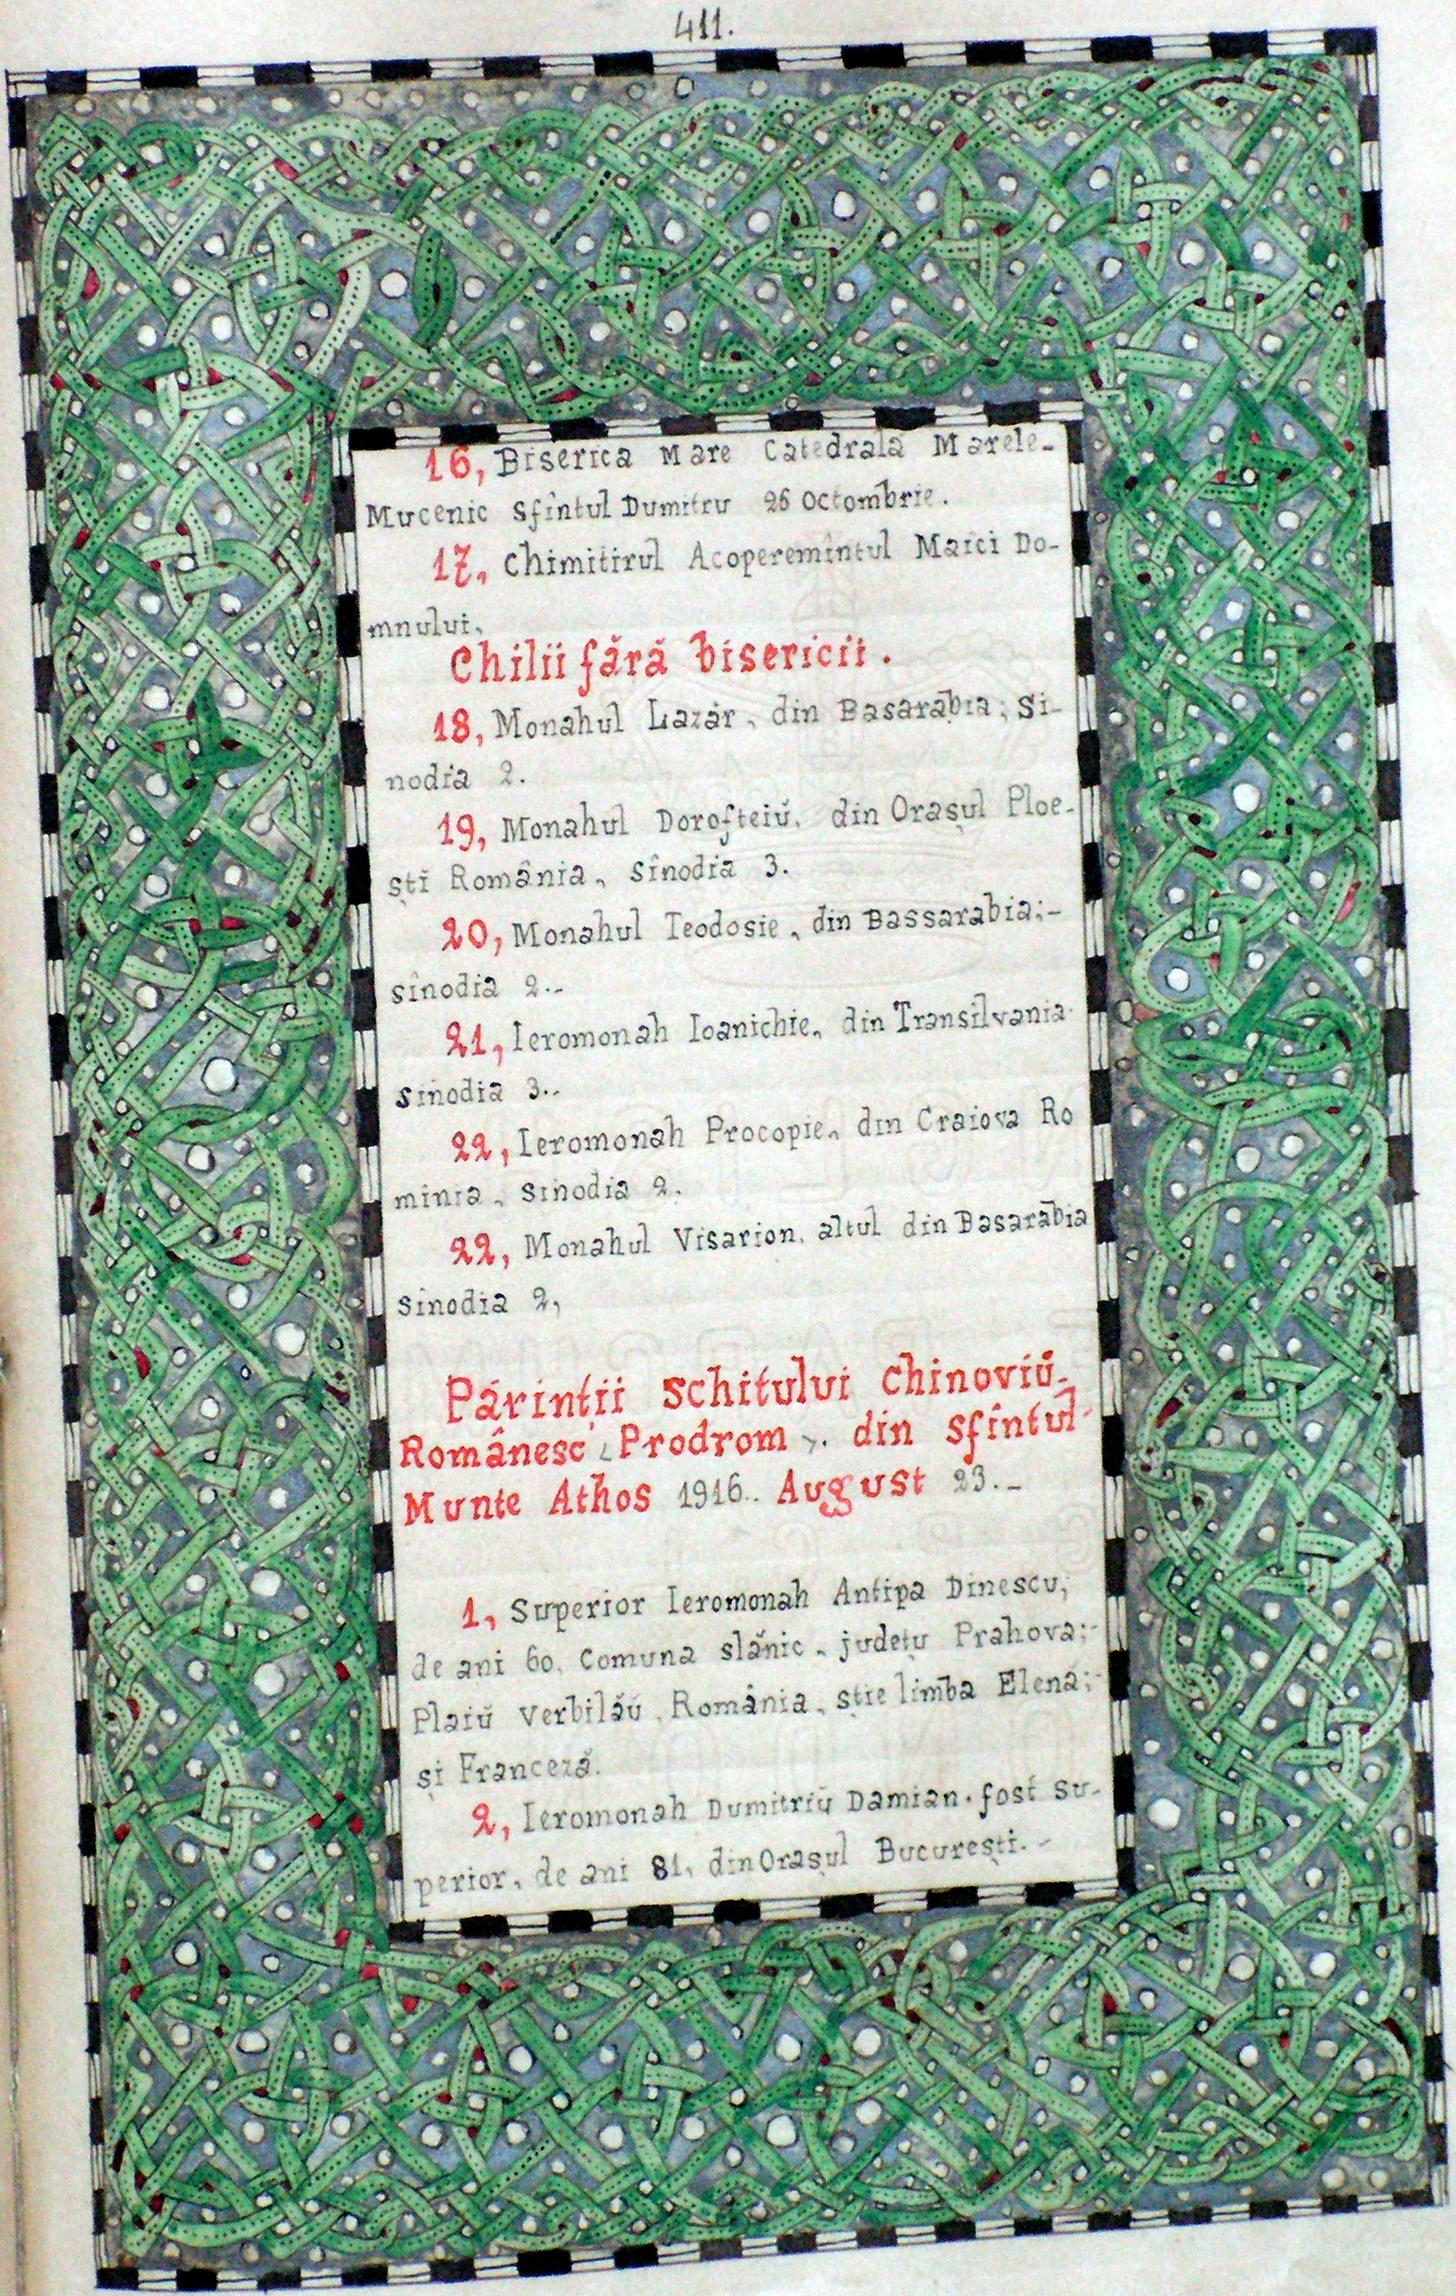 411.
16, Biserica Mare Catedrala Marele-
Mucenic Sfîntul Dumitru 26 Octombrie.
17, Chimitirul Acoperemîntul Maici Do-
mnului,
Chilii fără bisericii.
18, Monahul Lazăr, din Basarabia; Si-
nodia 2.
19, Monahul Dorofteiŭ, din Orașul Ploe-
ști România, sînodia 3.
20, Monahul Teodosie, din Bassarabia;-
sînodia 2.-
21, Ieromonah Ioanichie, din Transilvania-
sinodia 3..
22, Ieromonah Procopie, din Craiova Ro
mînia, sinodia 2.
22, Monahul Visarion, altul din Basarabia
sînodia 2,
Părinții Schitului Chinoviŭ-
Românesc Prodrom. din sfîntul-
Munte Athos 1916.. August 23.-
1, Superior Ieromonah Antipa Dinescu,
de ani 60, Comuna slănic, județu Prahova;-
Plaiŭ Verbilăŭ, România, știe limba Elenă;-
și Franceză.
2, Ieromonah Dumitriŭ Damian. fost Su-
perior, de ani 81, din Orașul București.-